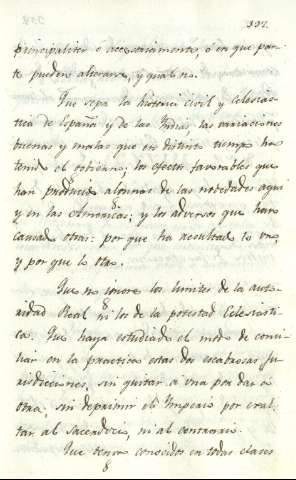 337.
principalitér o accesoriamente, ó en que par-
te pueden alterarse, y qual no.
Que sepa la historia civil y eclesias-
tica de España y de las Indias, las variaciones
buenas y malas que en distintos tiempos ha
tenido el gobierno; los efectos favorables que
han producido algunas de las novedades aqui
y en las Americas; y los adversos que han
causado otras: por que ha resultado lo uno,
y por que lo otro.
Que no ignore los limites de la auto-
ridad Real ni los de la potestad Eclesiasti-
ca. Que haya estudiado el modo de conci-
liar en la practica estas dos escabrosas ju-
risdicciones, sin quitar a una por dar á
otra, sin deprimir el Imperio por exal-
tar al sacerdocio, ni al contrario.
Que tenga conocidos en todas clases